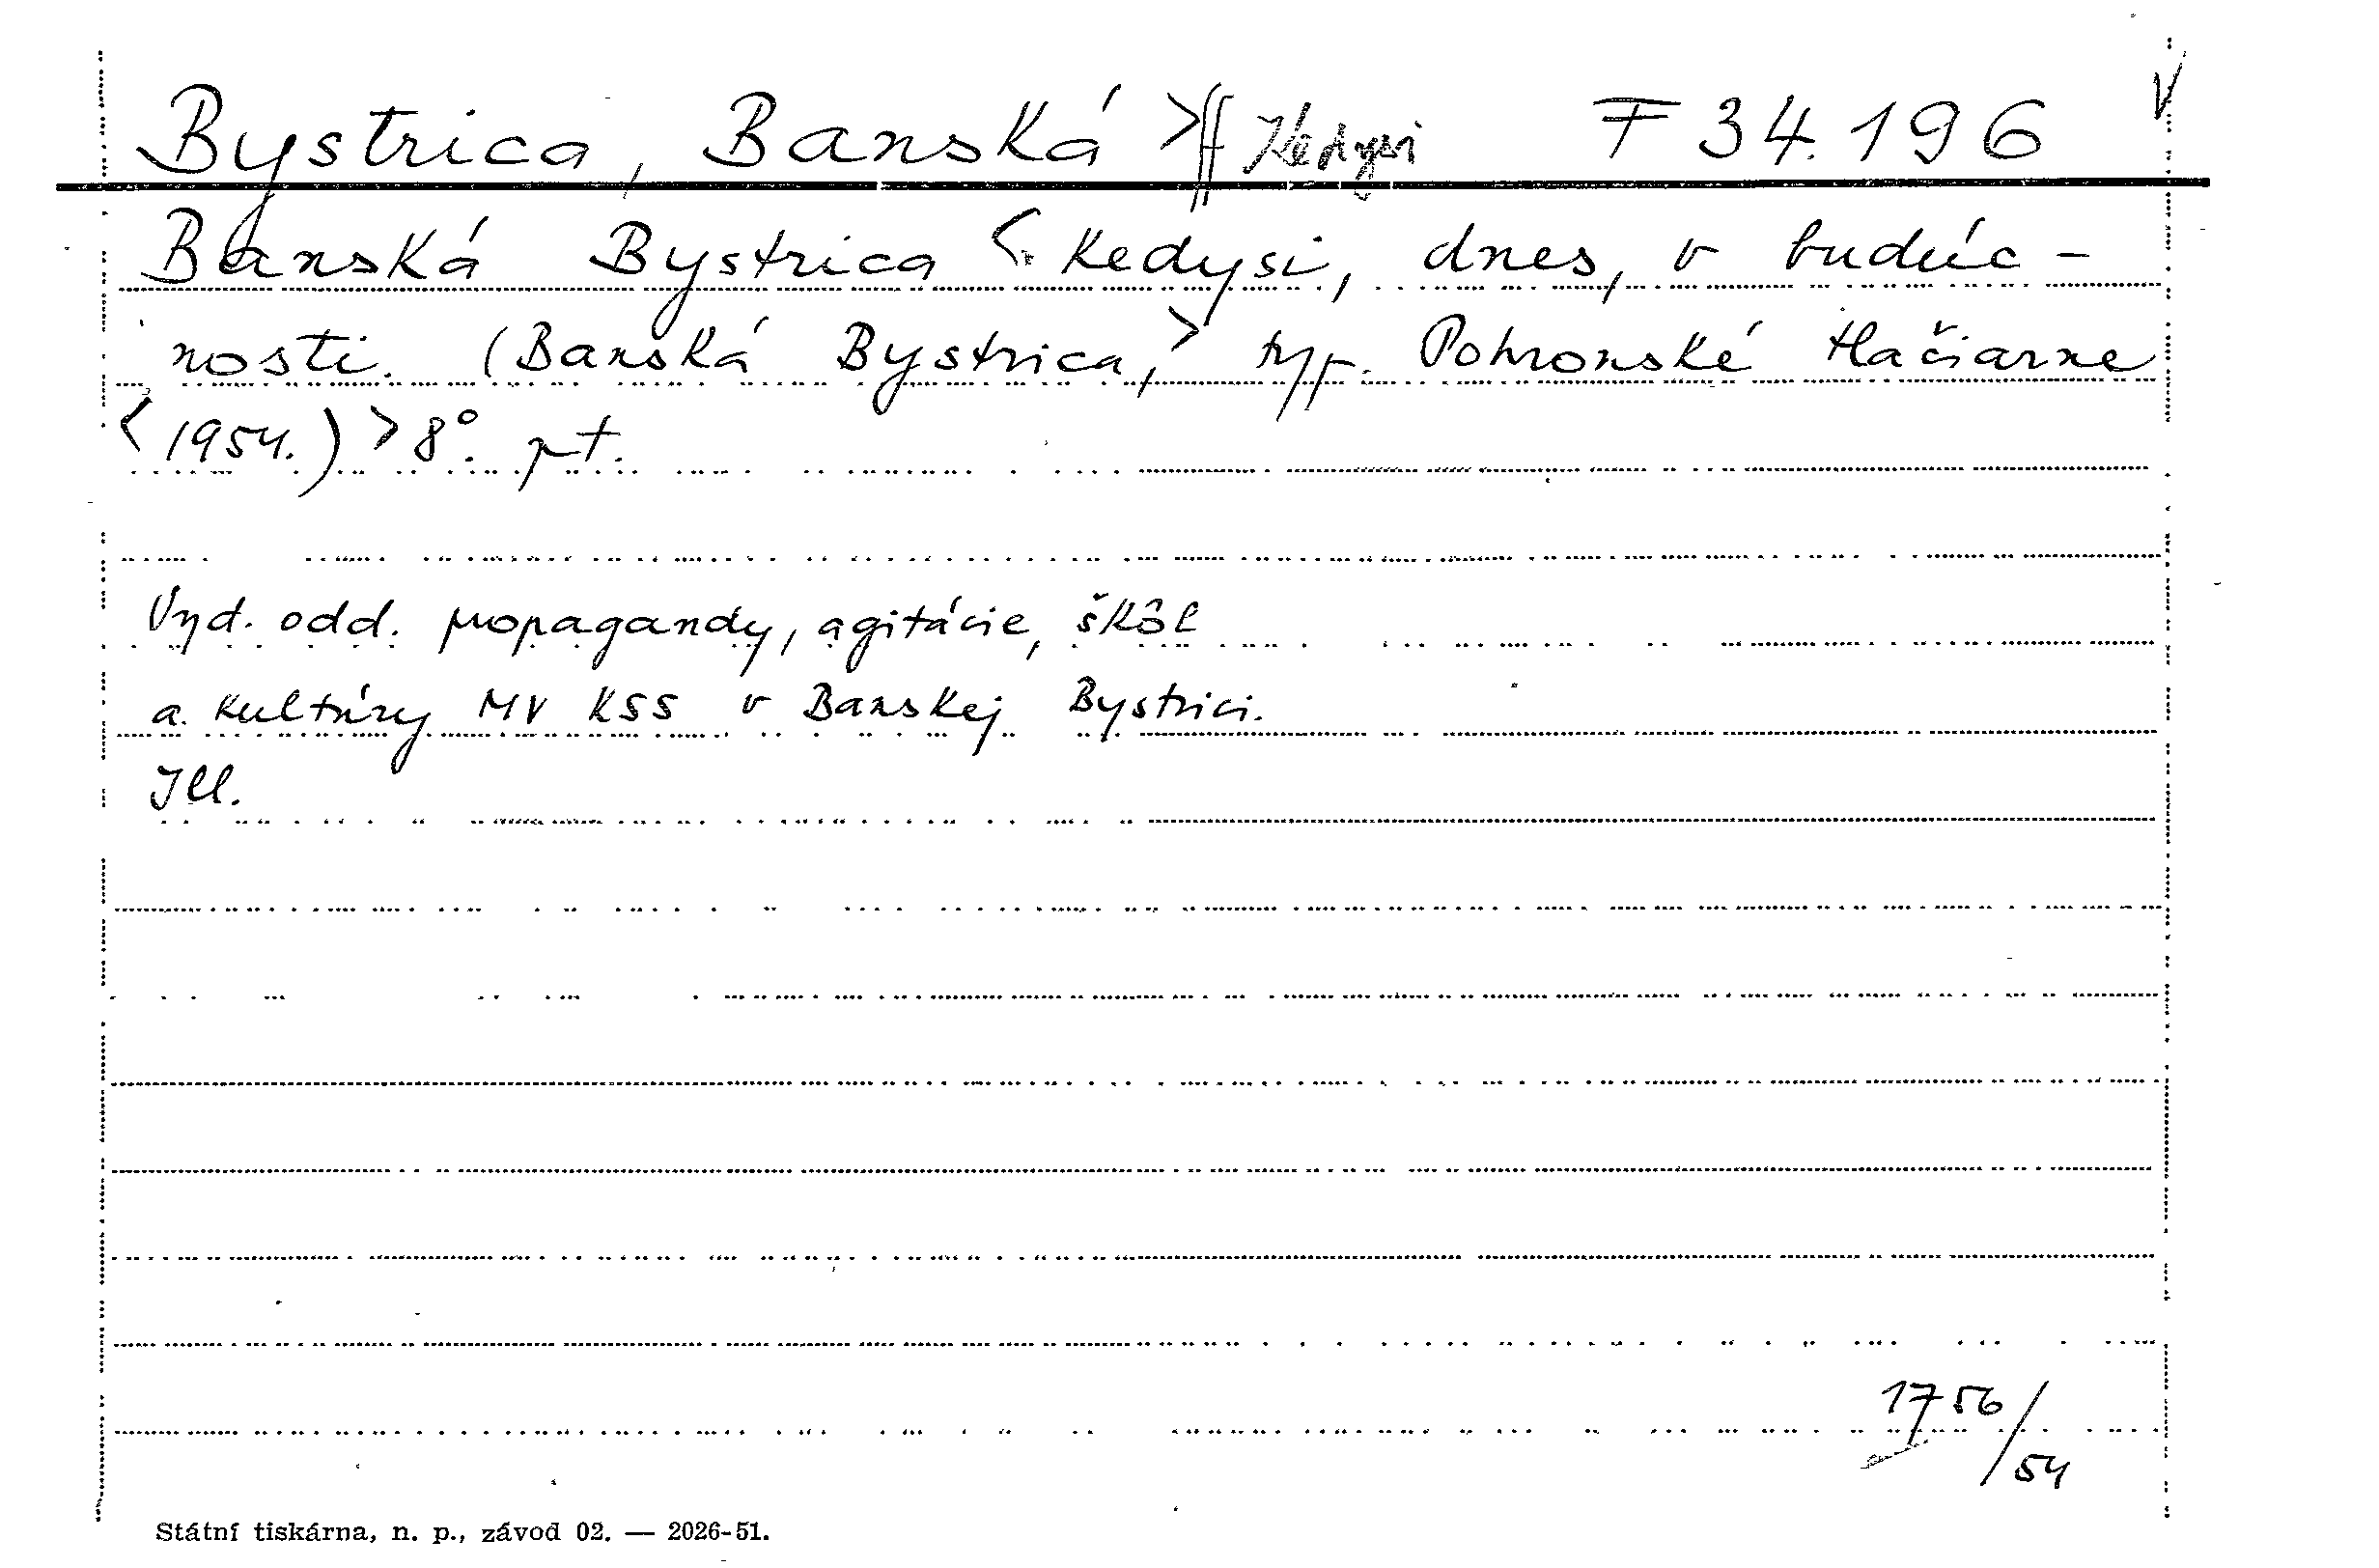 Bystrica, Banská > Kedysi F 34.196
Banská Bystrica < kedysi, dnes, v budúc-
nosti. (Banská Bystrica, > typ. Pohronské tlačiarne
< 1954.) > 8°. pt.
Vyd. odd. propagandy, agitácie, škôl
a kultúry MV KSS v Banskej Bystrici.
Ill.
1756/54
Státní tiskárna, n. p., závod 02. — 2026-51.